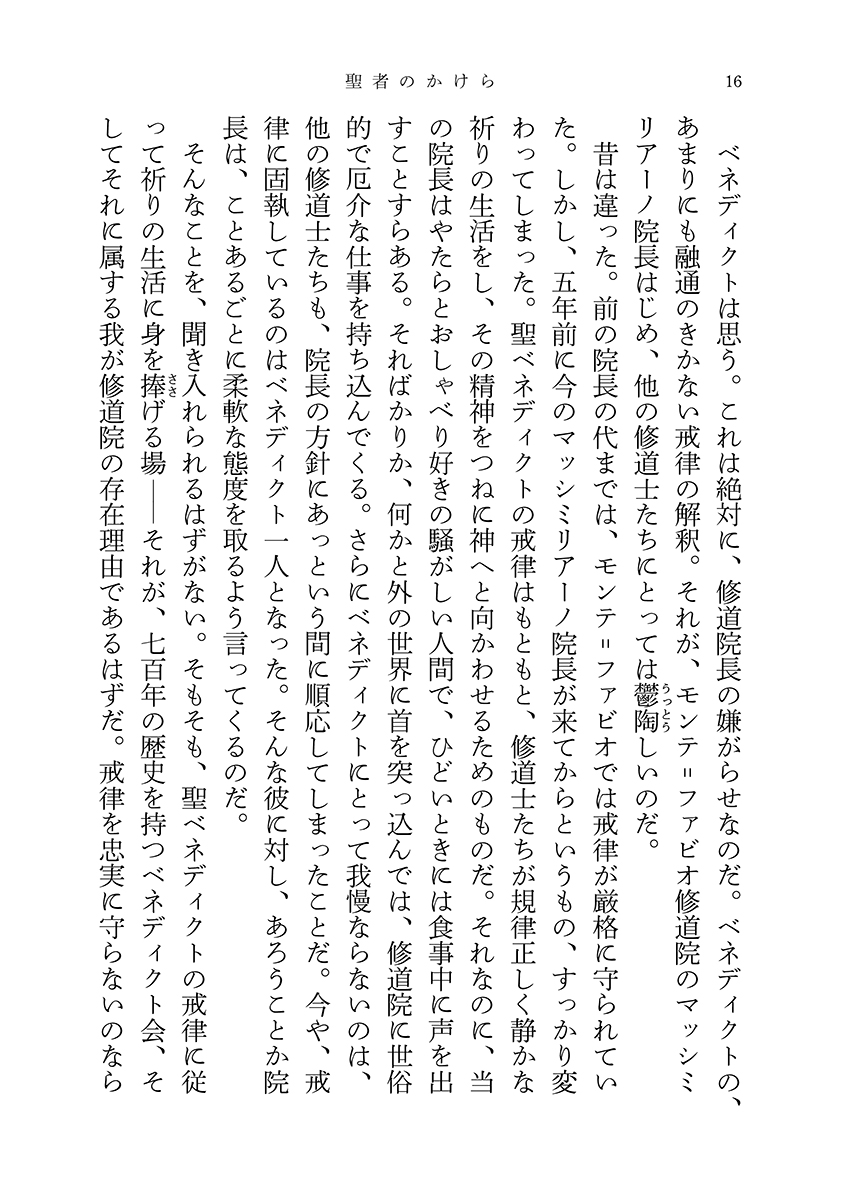 聖者のかけら
16
　ベネディクトは思う。これは絶対に、修道院長の嫌がらせなのだ。ベネディクトの、
あまりにも融通のきかない戒律の解釈。それが、モンテ＝ファビオ修道院のマッシミ
リアーノ院長はじめ、他の修道士たちにとっては鬱陶うっとうしいのだ。
　昔は違った。前の院長の代までは、モンテ＝ファビオでは戒律が厳格に守られてい
た。しかし、五年前に今のマッシミリアーノ院長が来てからというもの、すっかり変
わってしまった。聖ベネディクトの戒律はもともと、修道士たちが規律正しく静かな
祈りの生活をし、その精神をつねに神へと向かわせるためのものだ。それなのに、当
の院長はやたらとおしゃべり好きの騒がしい人間で、ひどいときには食事中に声を出
すことすらある。そればかりか、何かと外の世界に首を突っ込んでは、修道院に世俗
的で厄介な仕事を持ち込んでくる。さらにベネディクトにとって我慢ならないのは、
他の修道士たちも、院長の方針にあっという間に順応してしまったことだ。今や、戒
律に固執しているのはベネディクト一人となった。そんな彼に対し、あろうことか院
長は、ことあるごとに柔軟な態度を取るよう言ってくるのだ。
　そんなことを、聞き入れられるはずがない。そもそも、聖ベネディクトの戒律に従
って祈りの生活に身を捧ささげる場――それが、七百年の歴史を持つベネディクト会、そ
してそれに属する我が修道院の存在理由であるはずだ。戒律を忠実に守らないのなら